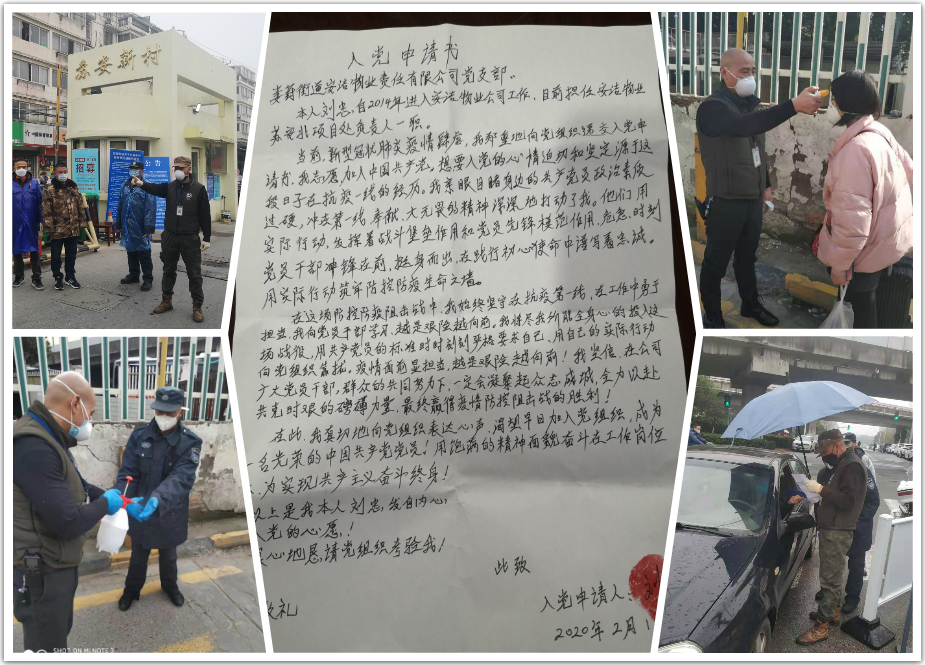 苏安新村
招募
公告
入党申请书
娄葑街道安洁物业责任有限公司党支部。
本人刘忠,自2014年进入安洁物业公司工作,目前担任安洁物业
苏安北项目处负责人一职。
当前,新型冠状肺炎疫情肆虐,我郑重地向党组织递交入党申
请书,我志愿加入中国共产党,想要入党的心情迫切和坚定,源于这
段日子在抗疫一线的经历。我亲眼目睹身边的共产党员政治素质
过硬,冲在第一线,奉献,大无畏的精神深深地打动了我。他们用
实际行动,发挥着战斗堡垒作用和党员先锋模范作用,危急时刻
党员干部冲锋在前,挺身而出,在践行初心使命中谱写着忠诚。
用实际行动筑牢防控防疫生命之墙。
在这场防控防疫阻击战中,我始终坚守在抗疫第一线,在工作中勇于
担当,我向党员干部学习,越是艰险越向前。我将尽我所能全身心的投入这
场战役,用共产党员的标准时时刻刻严格要求自己,用自己的实际行动
向党组织靠拓,疫情面前显担当,越是艰险越向前!我坚信,在公司
广大党员干部,群众的共同努力下,一定会凝聚起众志成城,全力以赴
共克时艰的磅礴力量,最终赢得疫情防控阻击战的胜利!
在此,我真切地向党组织表达心声,渴望早日加入党组织,成为
一名光荣的中国共产党党员。用饱满的精神面貌奋斗在工作岗位
上,为实现共产主义奋斗终身!
以上是我本人刘忠,发自内心,
入党的心愿!
心地恳请党组织考验我!
此致
敬礼
入党申请人:
2020年2月1
SHOT ON MI NOTE 3